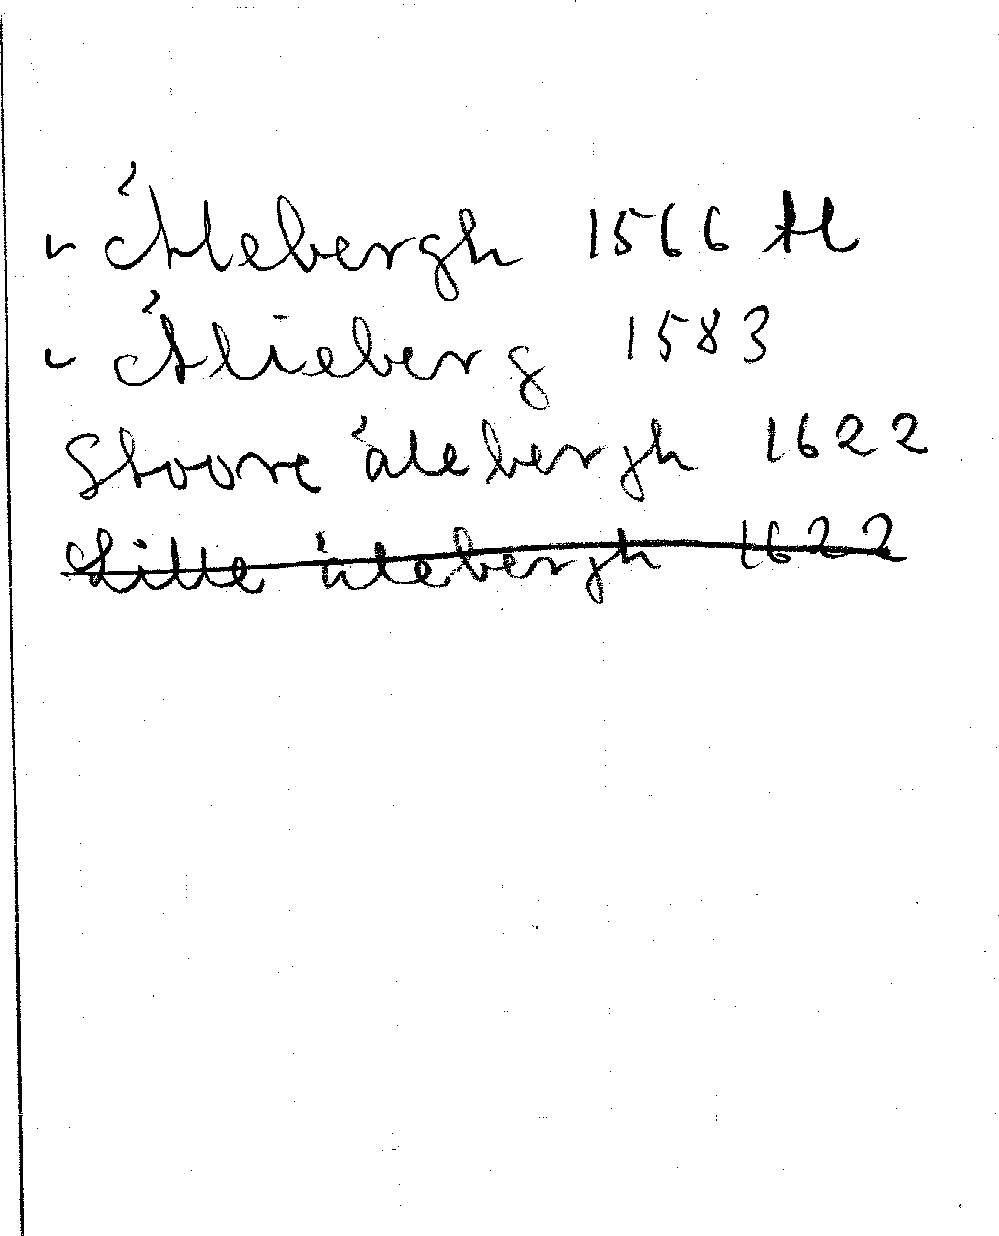 ✓ Ålebergh 1566 Al
✓ Ålieberg 1583
Stoore ålebergh 1622
Lille ålebergh 1622